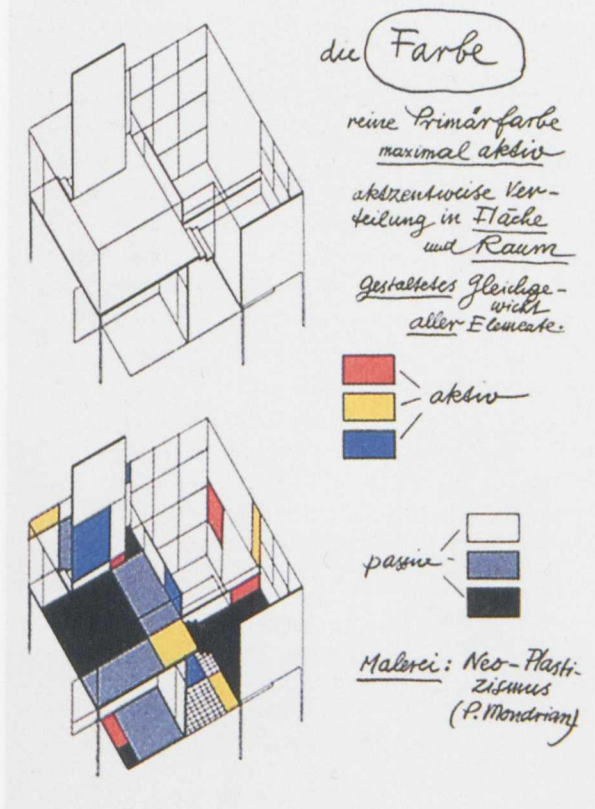 die Farbe
reine Primärfarbe
maximal aktiv
aktzentweise Ver-
teilung in Fläche
und Raum
gestaltetes Gleichge-
wicht
aller Elemente.
aktiv
passiv
Malerei: Neo-Plasti-
zismus
(P. Mondrian)